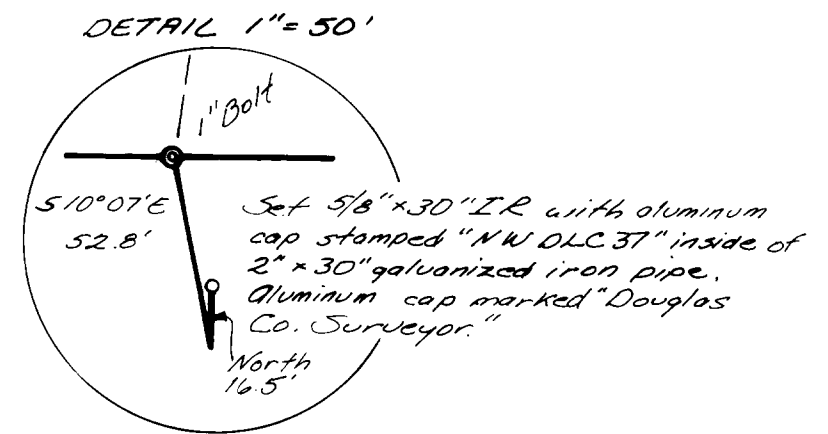 DETAIL 1"= 50'
1" Bolt
S 10°07'E
52.8'
Set 5/8"×30" IR with aluminum
cap stamped "NW DLC 37" inside of
2" × 30" galvanized iron pipe.
Aluminum cap marked "Douglas
Co. Surveyor."
North
16.5'